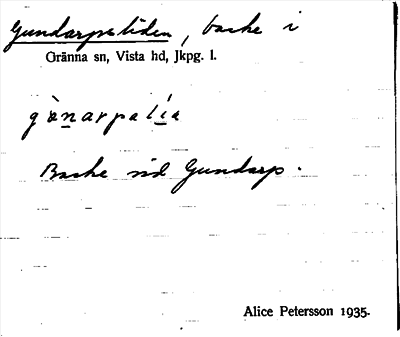 Gundarpaliden, backe i
Gränna sn, Vista hd, Jkpg. l.
gànarpalía
Backe vid Gundarp.
Alice Petersson 1935.